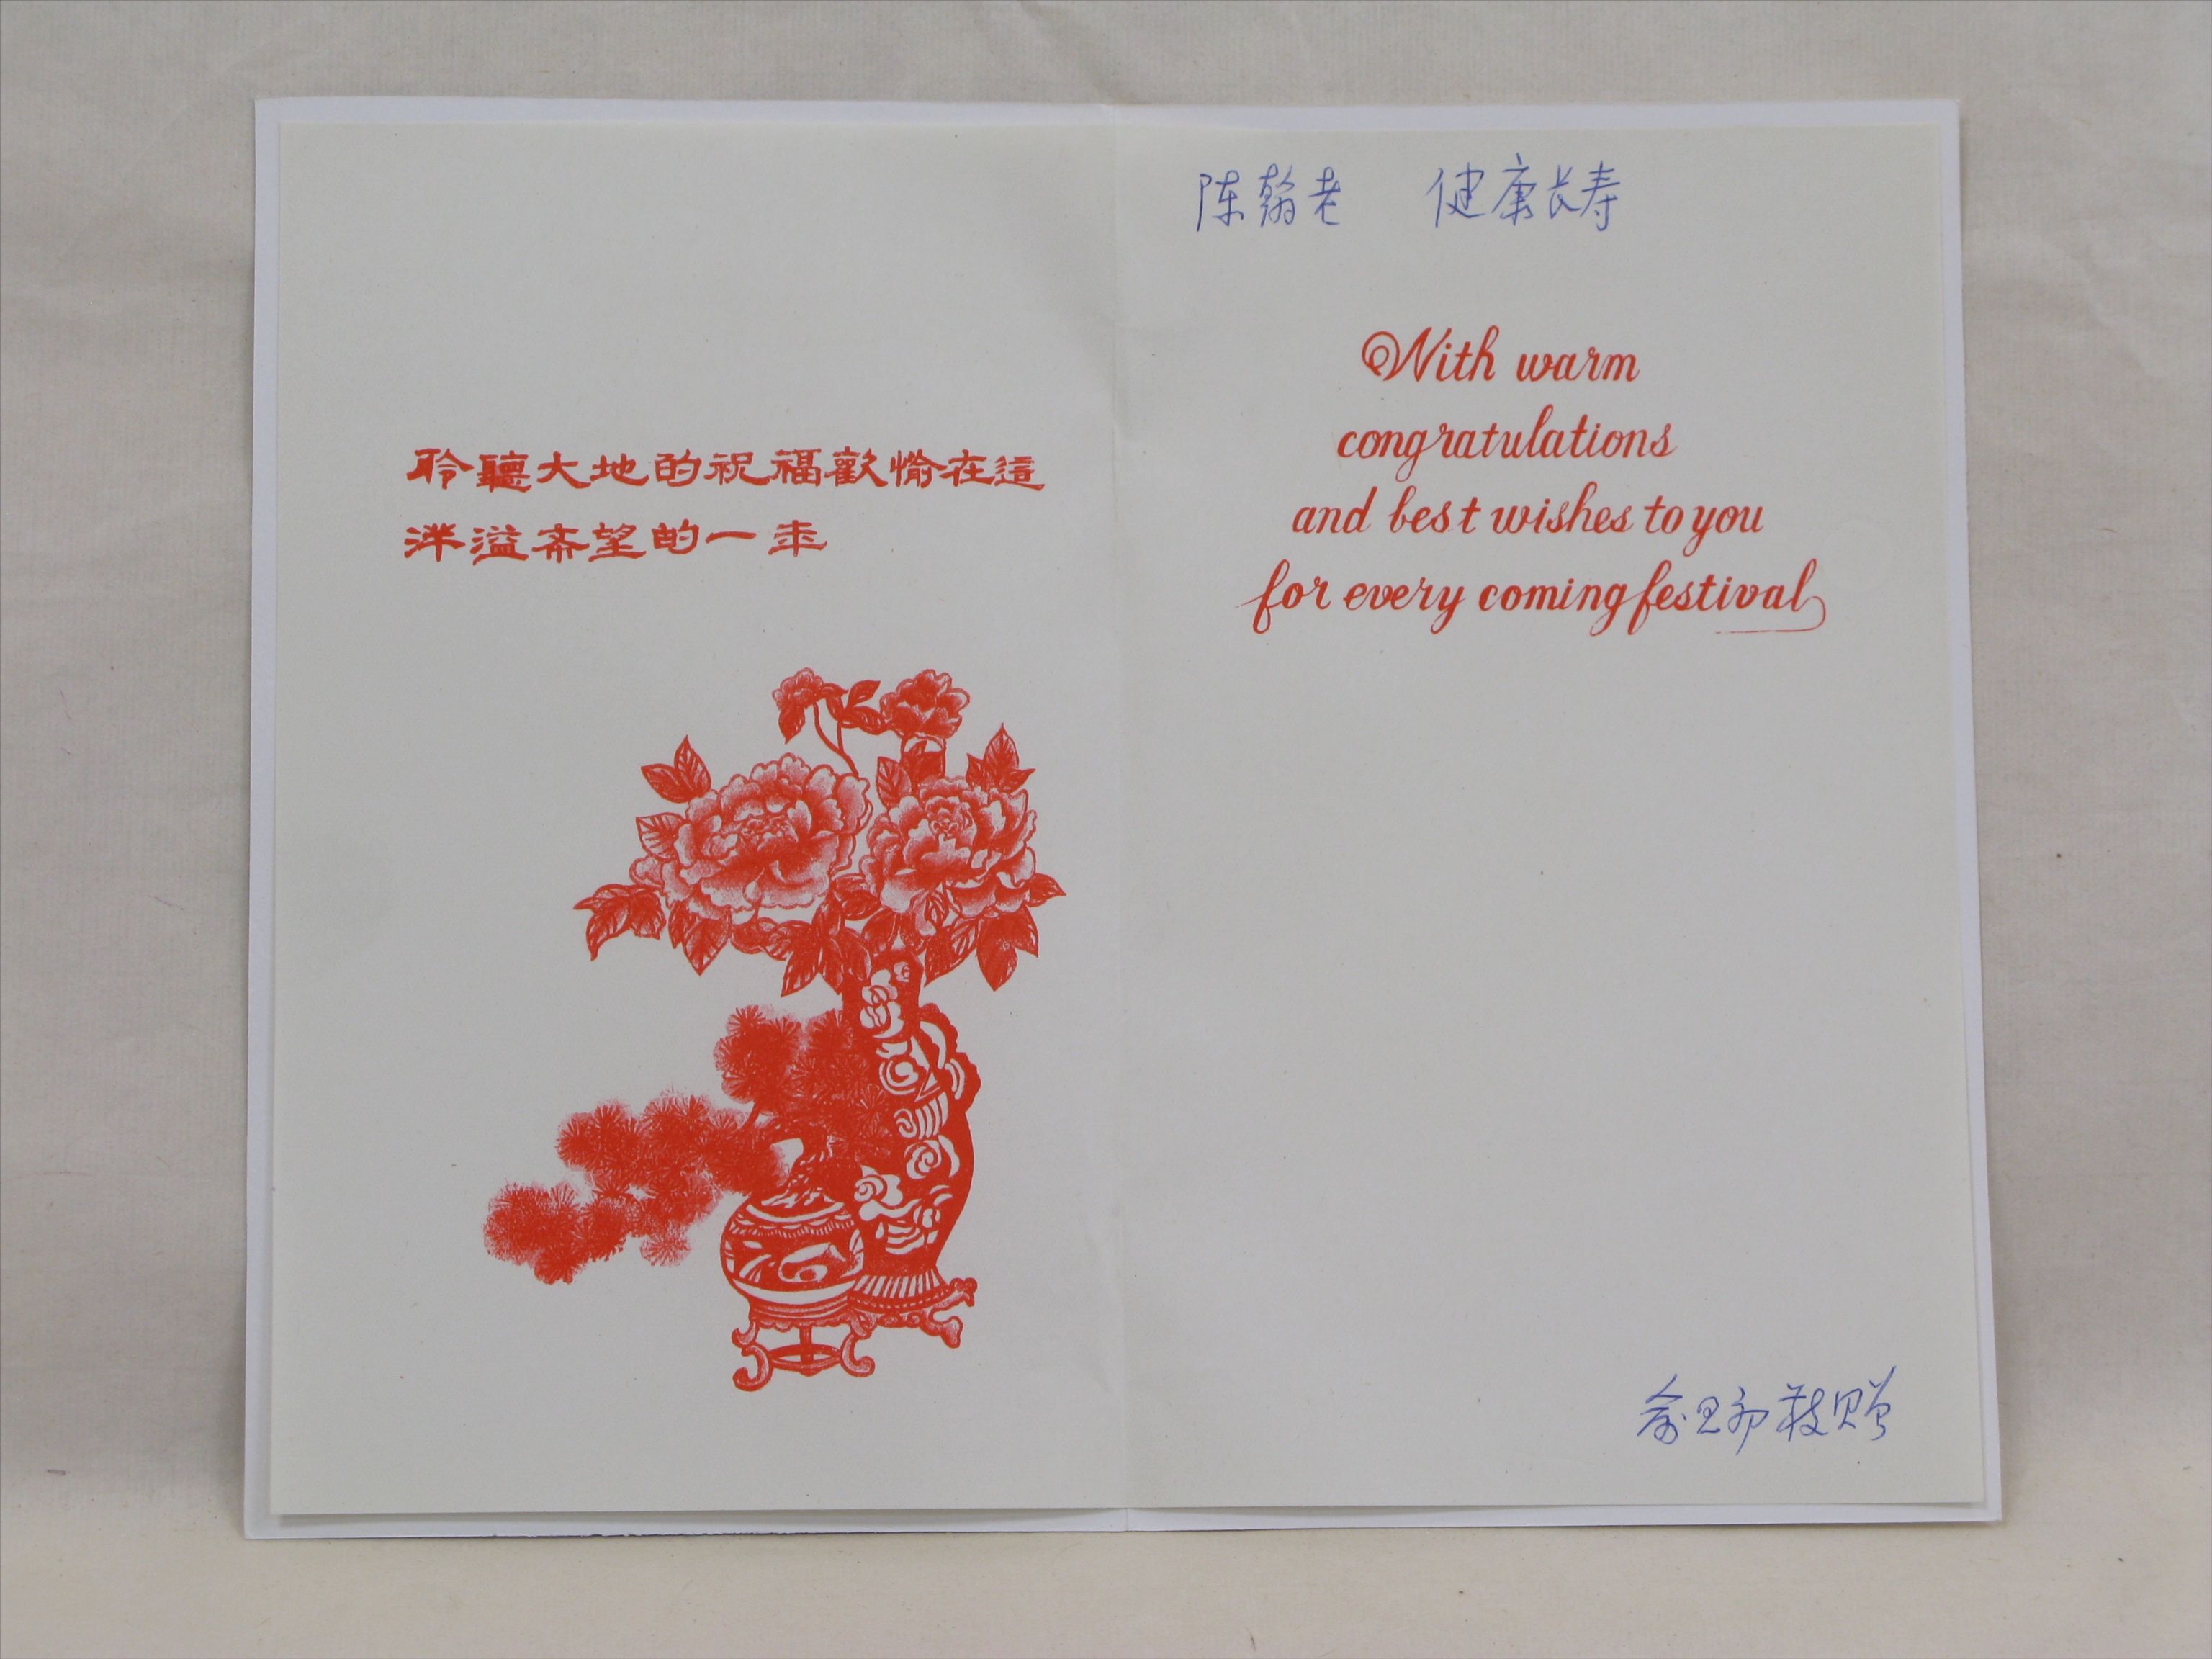 聆聽大地的祝福歡愉在這
洋溢希望的一年
陈翰老 健康长寿
With warm
congratulations
and best wishes to you
for every coming festival
敬赠